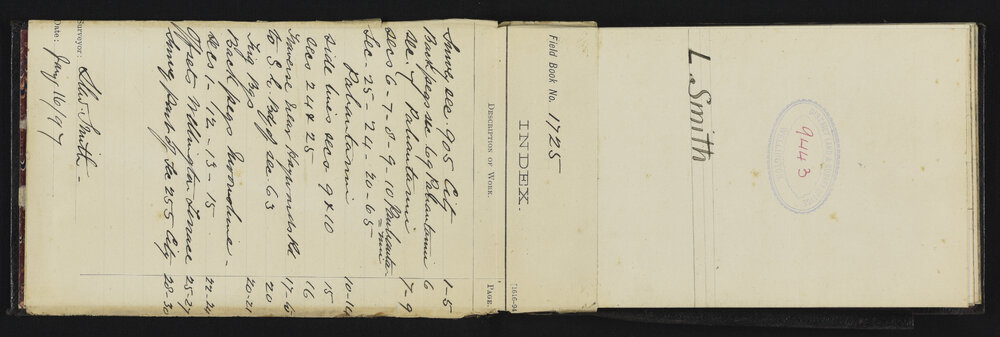 L. Smith
9443
Field Book No. 1725
[1616-94
INDEX.
Description of Work. Page.
Survey sec. 905 City 1-5
Back pegs sec 69 Pahautanui 6
sec. 7 Pahautanui 7-9
secs 6-7-8-9-10 Pauhauta=nui
Sec - 25 - 24 - 20 - 65
Pahautanui 10-14
side lines secs 9 & 10 15
secs 24 & 25 16
Traverse near Haywards Rd 17-
to S.E. Bdy of sec 63 20
Trig Bgs 20-21
Back pegs
secs 1-12-13-15 22-24
Offsets Wellington Terrace 25-27
Survey part of sec 255 City 28-30
Surveyor: Smith -
Date: Jany 16/97